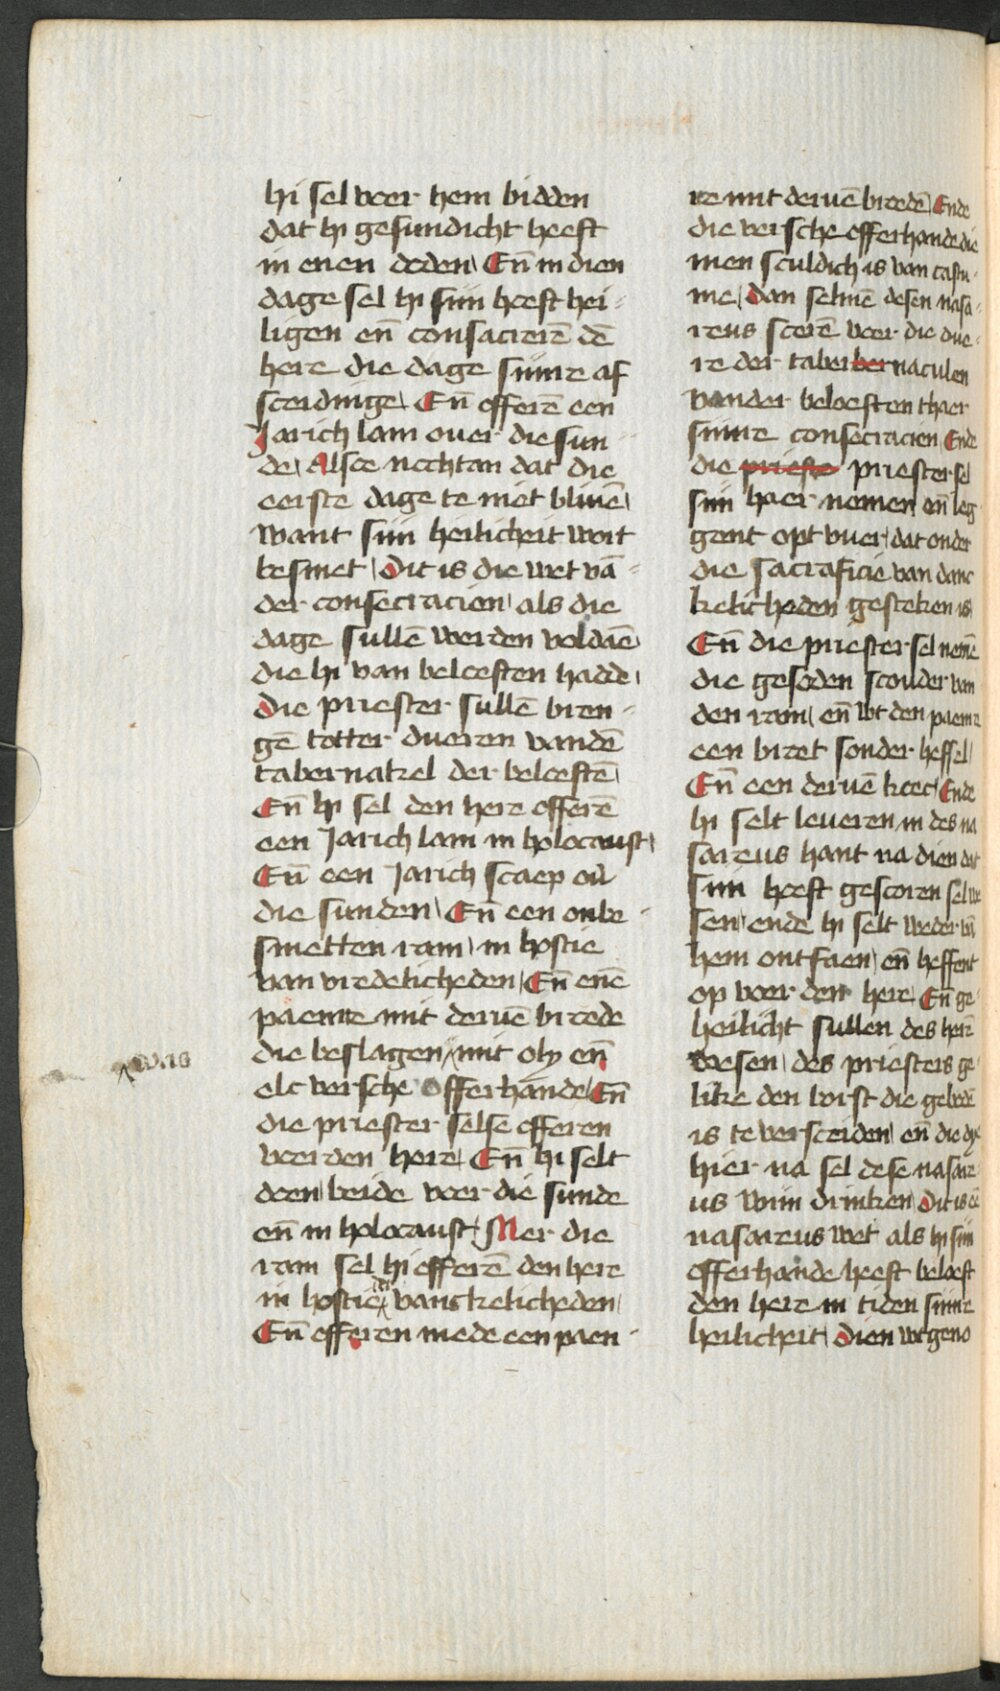 hi sel voer hem bidden
dat hi gesundicht heeft
in enen doden Eñ in dien
dage sel hi sijn hoeft hei-
ligen eñ consacrerē dē
here die dage sijnre af
sceidinge Eñ offerē een
Jarich lam ouer die sun-
de Alsoe nochtan dat die
eerste dage te niet bliuē
want sijn heilicheit wort
besmet Dit is die wet vā-
der consecracien als die
dage sullē werden voldaē
die hi van beloeften hadde
Die priester sullē bren-
gē totter dueren vandē
tabernakel der beloeftē
Eñ hi sel den here offerē
een Jarich lam in holocaust
Eñ een Jarich scaep ou̅
die sunden Eñ een onbe-
smetten ram in hostie
van vredelicheden Eñ enē
paenre mit deruē broede
die beslagen mit oly eñ
elc versche offerhande Eñ
die priester selse offeren
voer den here Eñ hi selt
doen beide voer die sunde
eñ in holocaust Mer die
ram sel hi offerē den here
in hostie van danckelicheden
Eñ offeren mede een paen-
re mit deruē broedē Ende
die versche offerhande die
men sculdich is van costu-
me Dan selmē desen nasa-
reus scerē voer die due-
re der taberbernaculen
vander beloeften thaer
sijnre consecracien Ende
die prieste priester sel
sijn haer nemen eñ leg
gent opt vuer dat onder
die sacraficie van danc
kelicheden gesteken is
Eñ die priester sel nemē
die gesoden scouder van
den ram eñ wt den paenre
een broet sonder heffel
Eñ een deruē koec Ende
hi selt leueren in des na
sareus hant na dien dat
sijn hoeft gescoren sel we
sen ende hi selt weder vā
hem ontfaen eñ heffent
op voer den here Eñ ge-
heilicht sullen des herē
wesen des priesters ge-
like den borst die geboedē
is te versceiden eñ die dye
hier na sel dese nasare-
us wijn drinken Dit is ē
nasareus wet als hi sijn
offerhande heeft beloeft
den here in tiden sijnre
heilicheit Dien wegeno